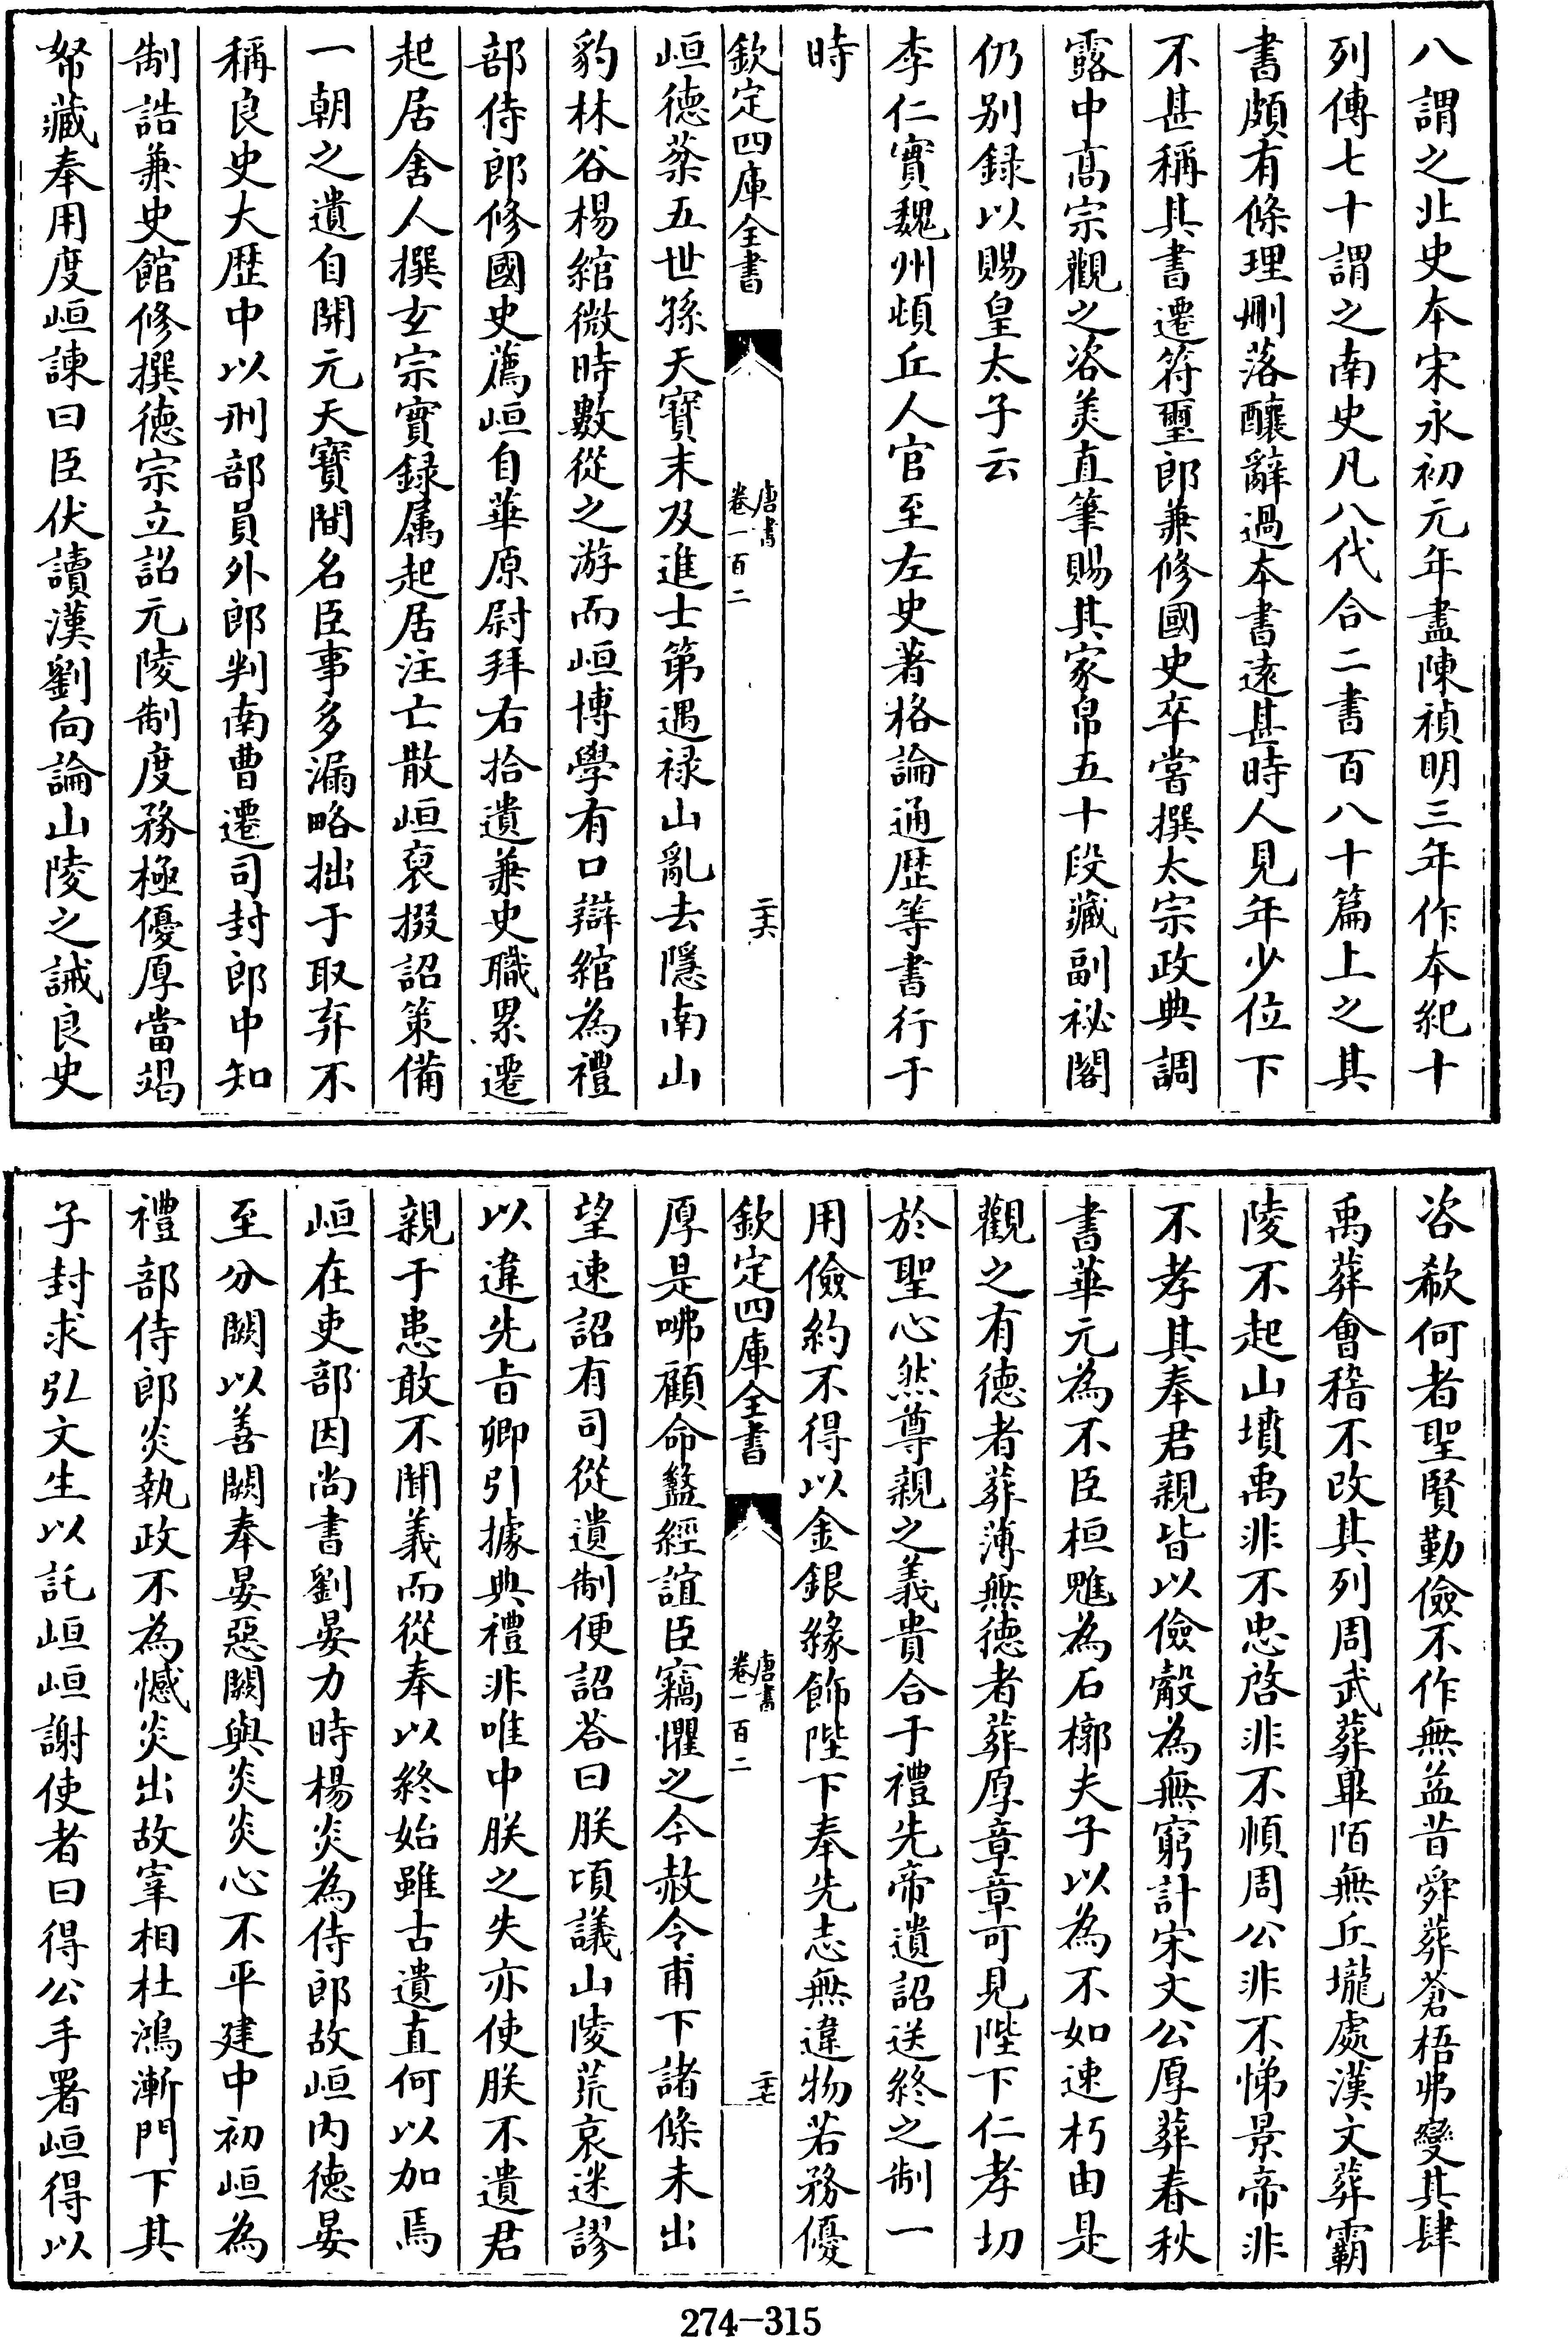 八謂之北史本宋永初元年盡陳禎明三年作本紀十
列傳七十謂之南史凡八代合二書百八十篇上之其
書頗有條理刪落釀辭過本書遠甚時人見年少位下
不甚稱其書遷符璽郎兼修國史卒嘗撰太宗政典調
露中高宗觀之咨美直筆賜其家帛五十段藏副祕閣
仍别録以賜皇太子云
李仁實魏州頓丘人官至左史著格論通歴等書行于
時
欽定四庫全書
唐書
卷一百二
二十六
峘德棻五世孫天寶末及進士第遇禄山亂去隱南山
豹林谷楊綰微時數從之游而峘博學有口辯綰為禮
部侍郎修國史薦峘自華原尉拜右拾遺兼史職累遷
起居舍人撰玄宗實録属起居注亡散峘裒掇詔策備
一朝之遺自開元天寶間名臣事多漏略拙于取弃不
稱良史大歴中以刑部員外郎判南曹遷司封郎中知
制誥兼史館修撰德宗立詔元陵制度務極優厚當竭
帑藏奉用度峘諫曰臣伏讀漢劉向論山陵之誡良史
咨欷何者聖賢勤儉不作無益昔舜葬蒼梧弗變其肆
禹葬會稽不改其列周武葬畢陌無丘壠處漢文葬霸
陵不起山墳禹非不忠啓非不順周公非不悌景帝非
不孝其奉君親皆以儉觳為無窮計宋文公厚葬春秋
書華元為不臣桓魋為石槨夫子以為不如速朽由是
觀之有德者葬薄無德者葬厚章章可見陛下仁孝切
於聖心然尊親之義貴合于禮先帝遺詔送終之制一
用儉約不得以金銀緣飾陛下奉先志無違物若務優
欽定四庫全書
唐書
卷一百二
二十七
厚是咈顧命盭經誼臣竊懼之今赦令甫下諸條未出
望速詔有司從遺制便詔答曰朕頃議山陵荒哀迷謬
以違先旨卿引據典禮非唯中朕之失亦使朕不遺君
親于患敢不聞義而從奉以終始雖古遺直何以加焉
峘在吏部因尚書劉晏力時楊炎為侍郎故峘内德晏
至分闕以善闕奉晏惡闕與炎炎心不平建中初峘為
禮部侍郎炎執政不為憾炎出故宰相杜鴻漸門下其
子封求弘文生以託峘峘謝使者曰得公手署峘得以
274-315